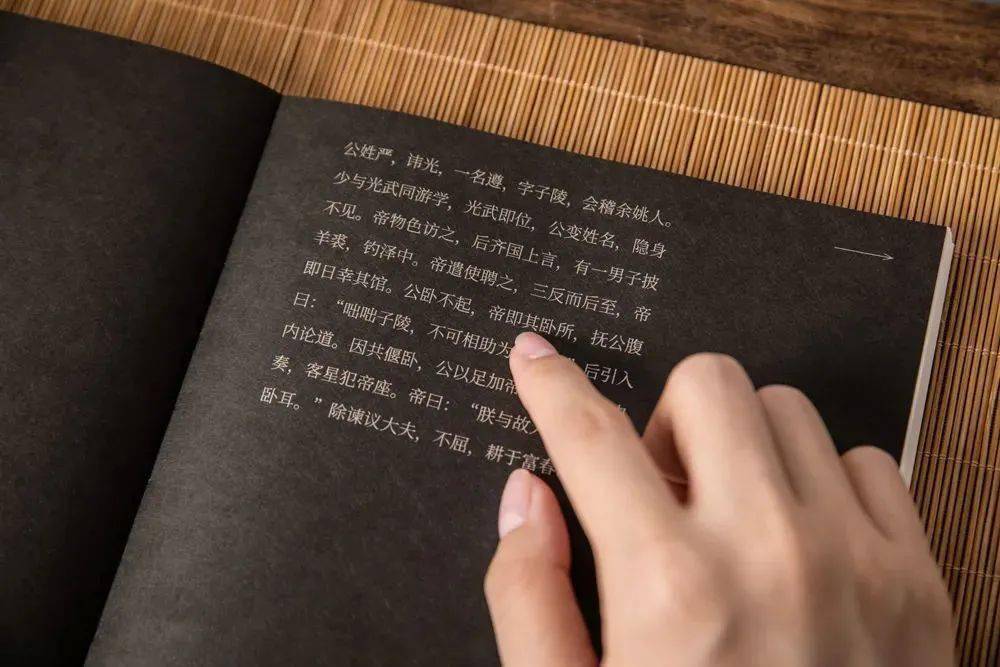 公姓严，讳光，一名遵，字子陵，会稽余姚人。
少与光武同游学，光武即位，公变姓名，隐身
不见。帝物色访之，后齐国上言，有一男子披
羊裘，钓泽中。帝遣使聘之，三反而后至，帝
即日幸其馆。公卧不起，帝即其卧所，抚公腹
曰：“咄咄子陵，不可相助为 后引入
内论道。因共偃卧，公以足加帝
奏，客星犯帝座。帝曰：“朕与故
卧耳。”除谏议大夫，不屈，耕于富春